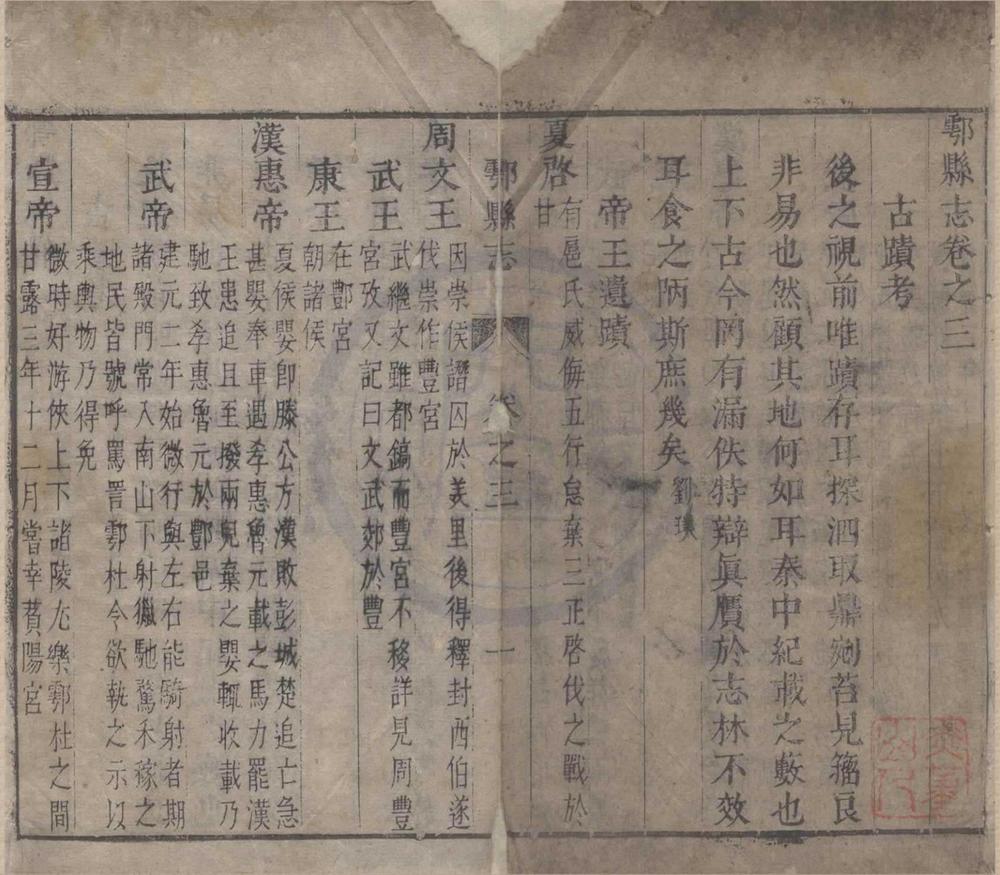 鄠縣志卷之三
古蹟考
後之視前唯蹟存耳探泗取鼎剜苔見籀良
非易也然顧其地何如耳秦中紀載之藪也
上下古今罔有漏佚特辯眞贋於志林不效
耳食之陋斯庶幾矣 劉璞
帝王遺蹟
夏啓 有扈氏威侮五行怠棄三正啓伐之戰於
甘
鄠縣志 卷之三 一
周文王 因崇侯譖囚於羑里後得釋封西伯遂
伐崇作豐宮
武王 武繼文雖都鎬而豐宮不移詳見周豐
宮攷又記曰文武郊於豐
康王 在酆宮
朝諸侯
漢惠帝 夏侯嬰卽滕公方漢敗彭城楚追亡急
甚嬰奉車遇孝惠魯元載之馬力罷漢
王患追且至撥兩兒棄之嬰輒收載乃
馳致孝惠魯元於酆邑
武帝 建元二年始微行與左右能騎射者期
諸殿門常入南山下射獵馳騖禾稼之
地民皆號呼罵詈鄠杜令欲執之示以
乘輿物乃得免
宣帝 微時好游俠上下諸陵尤樂鄠杜之間
甘露三年十二月嘗幸萯陽宮